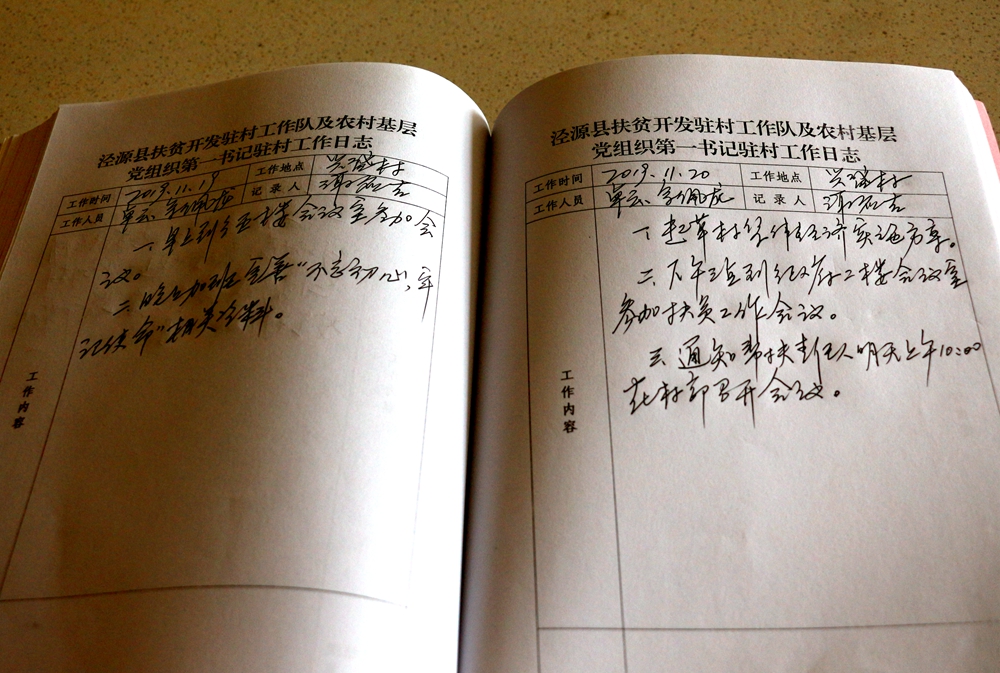 泾源县扶贫开发驻村工作队及农村基层
党组织第一书记驻村工作日志
工作时间 2019.11.19 工作地点 兴盛村
工作人员 记录人
一、早上到 楼会议室参加会
议。
二、晚上加班完善“不忘初心,牢
记使命”相关资料。
工作内容
泾源县扶贫开发驻村工作队及农村基层
党组织第一书记驻村工作日志
工作时间 2019.11.20 工作地点 兴盛村
工作人员 记录人
一、起草村集体经济实施方案。
二、下午 到 府二楼会议室
参加扶贫工作会议。
三、通知帮扶责任人明天上午10:00
在村部召开会议。
工作内容